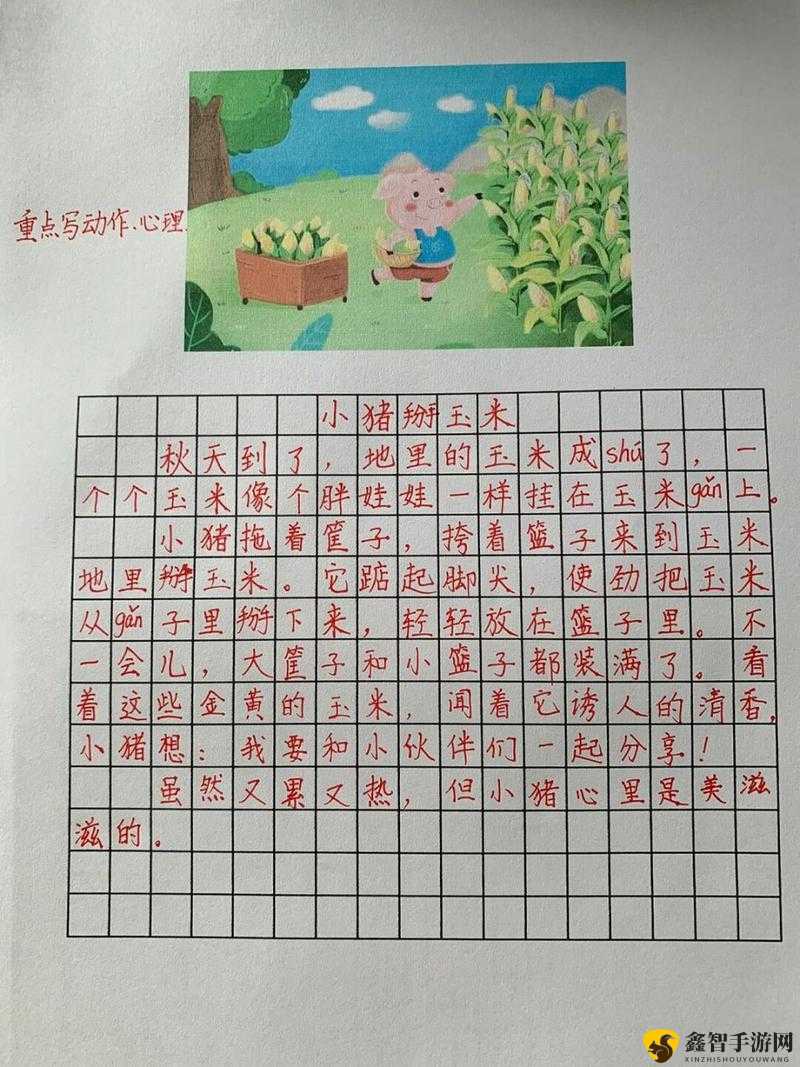 重点写动作、心理.
小猪掰玉米
秋天到了，地里的玉米成shú了，一
个个玉米像个胖娃娃一样挂在玉米gǎn上。
小猪拖着筐子，挎着篮子来到玉米
地里掰玉米。它踮起脚尖，使劲把玉米
从gǎn子里掰下来，轻轻放在篮子里。不
一会儿，大筐子和小篮子都装满了。看
着这些金黄的玉米，闻着它诱人的清香，
小猪想：我要和小伙伴们一起分享！
虽然又累又热，但小猪心里是美滋
滋的。
鑫智手游网
XINZHISHOUYOUWANG